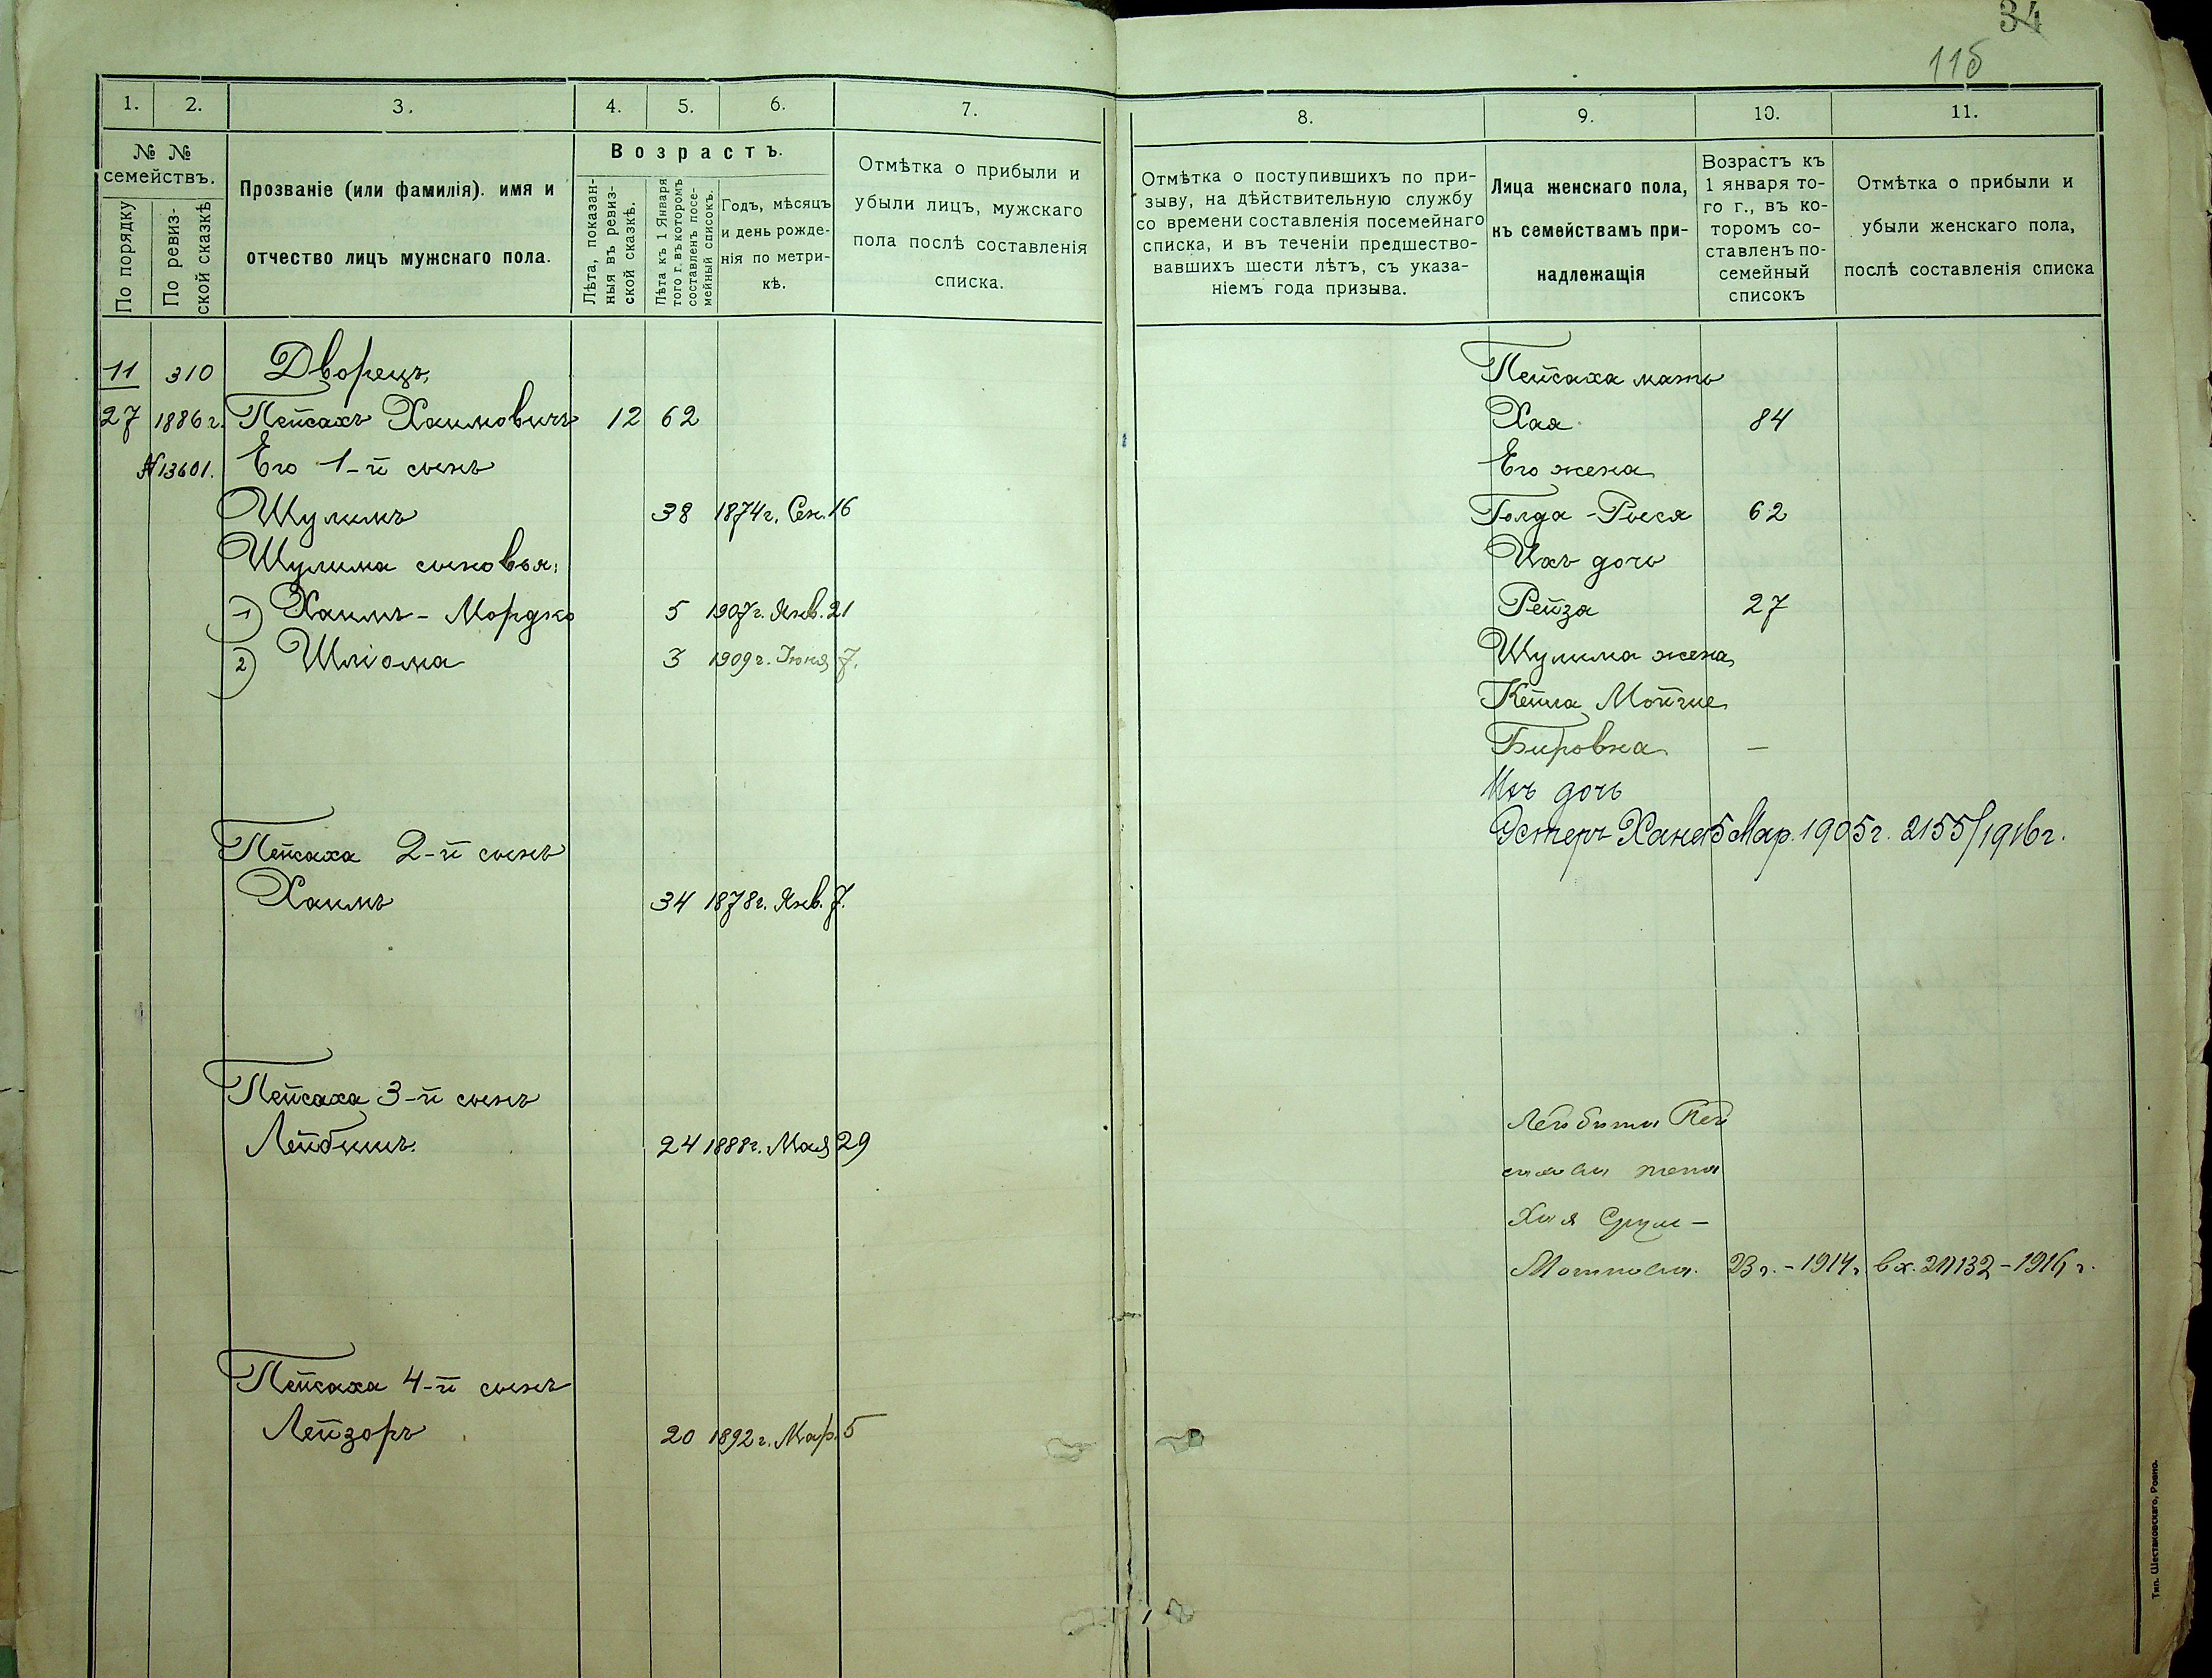 34
115
1. 2. 3. 4. 5. 6. 7.
№ № семействъ.
По порядку
По ревизской сказкѣ
Прозваніе (или фамилія). имя и
отчество лицъ мужскаго пола.
Возрастъ.
Лѣта, показан-
ныя въ ревиз-
ской сказкѣ.
Лѣта къ 1 Января
того г. въ которомъ
составленъ посе-
мейный списокъ.
Годъ, мѣсяцъ
и день рожде-
нія по метри-
кѣ.
Отмѣтка о прибыли и
убыли лицъ, мужскаго
пола послѣ составленія
списка.
11 310 Дворецъ,
27 1886 г. Пейсахъ Хаимовичъ 12 62
№13601. Его 1-й сынъ
Шулимъ 38 1874 г. Сен. 16
Шулима сыновья:
1) Хаимъ-Мордко 5 1907 г. Янв. 21
2) Шліома 3 1909 г. Іюня 7.
Пейсаха 2-й сынъ
Хаимъ 34 1878 г. Янв. 7.
Пейсаха 3-й сынъ
Лейбишъ. 24 1888 г. Мая 29
Пейсаха 4-й сынъ
Лейзоръ 20 1892 г. Мар. 5
8. 9. 10. 11.
Отмѣтка о поступившихъ по при-
зыву, на дѣйствительную службу
со времени составленія посемейнаго
списка, и въ теченіи предшество-
вавшихъ шести лѣтъ, съ указа-
ніемъ года призыва.
Лица женскаго пола,
къ семействамъ при-
надлежащія
Возрастъ къ
1 января то-
го г., въ ко-
торомъ со-
ставленъ по-
семейный
списокъ
Отмѣтка о прибыли и
убыли женскаго пола,
послѣ составленія списка
Пейсаха мать
Хая 84
Его жена
Голда-Рыся 62
Ихъ дочь
Рейза 27
Шулима жена
Кейла Мойше
Бировна —
Ихъ дочь
Эстеръ Хана 5 Мар. 1905 г. 2155/1916 г.
Лейбиша Пей
сахова жена
Хая Сруль-
Мошкова. 23 г. - 1914 г. вх. 21132 - 1916 г.
Тип. Шестаковскаго, Ровно.